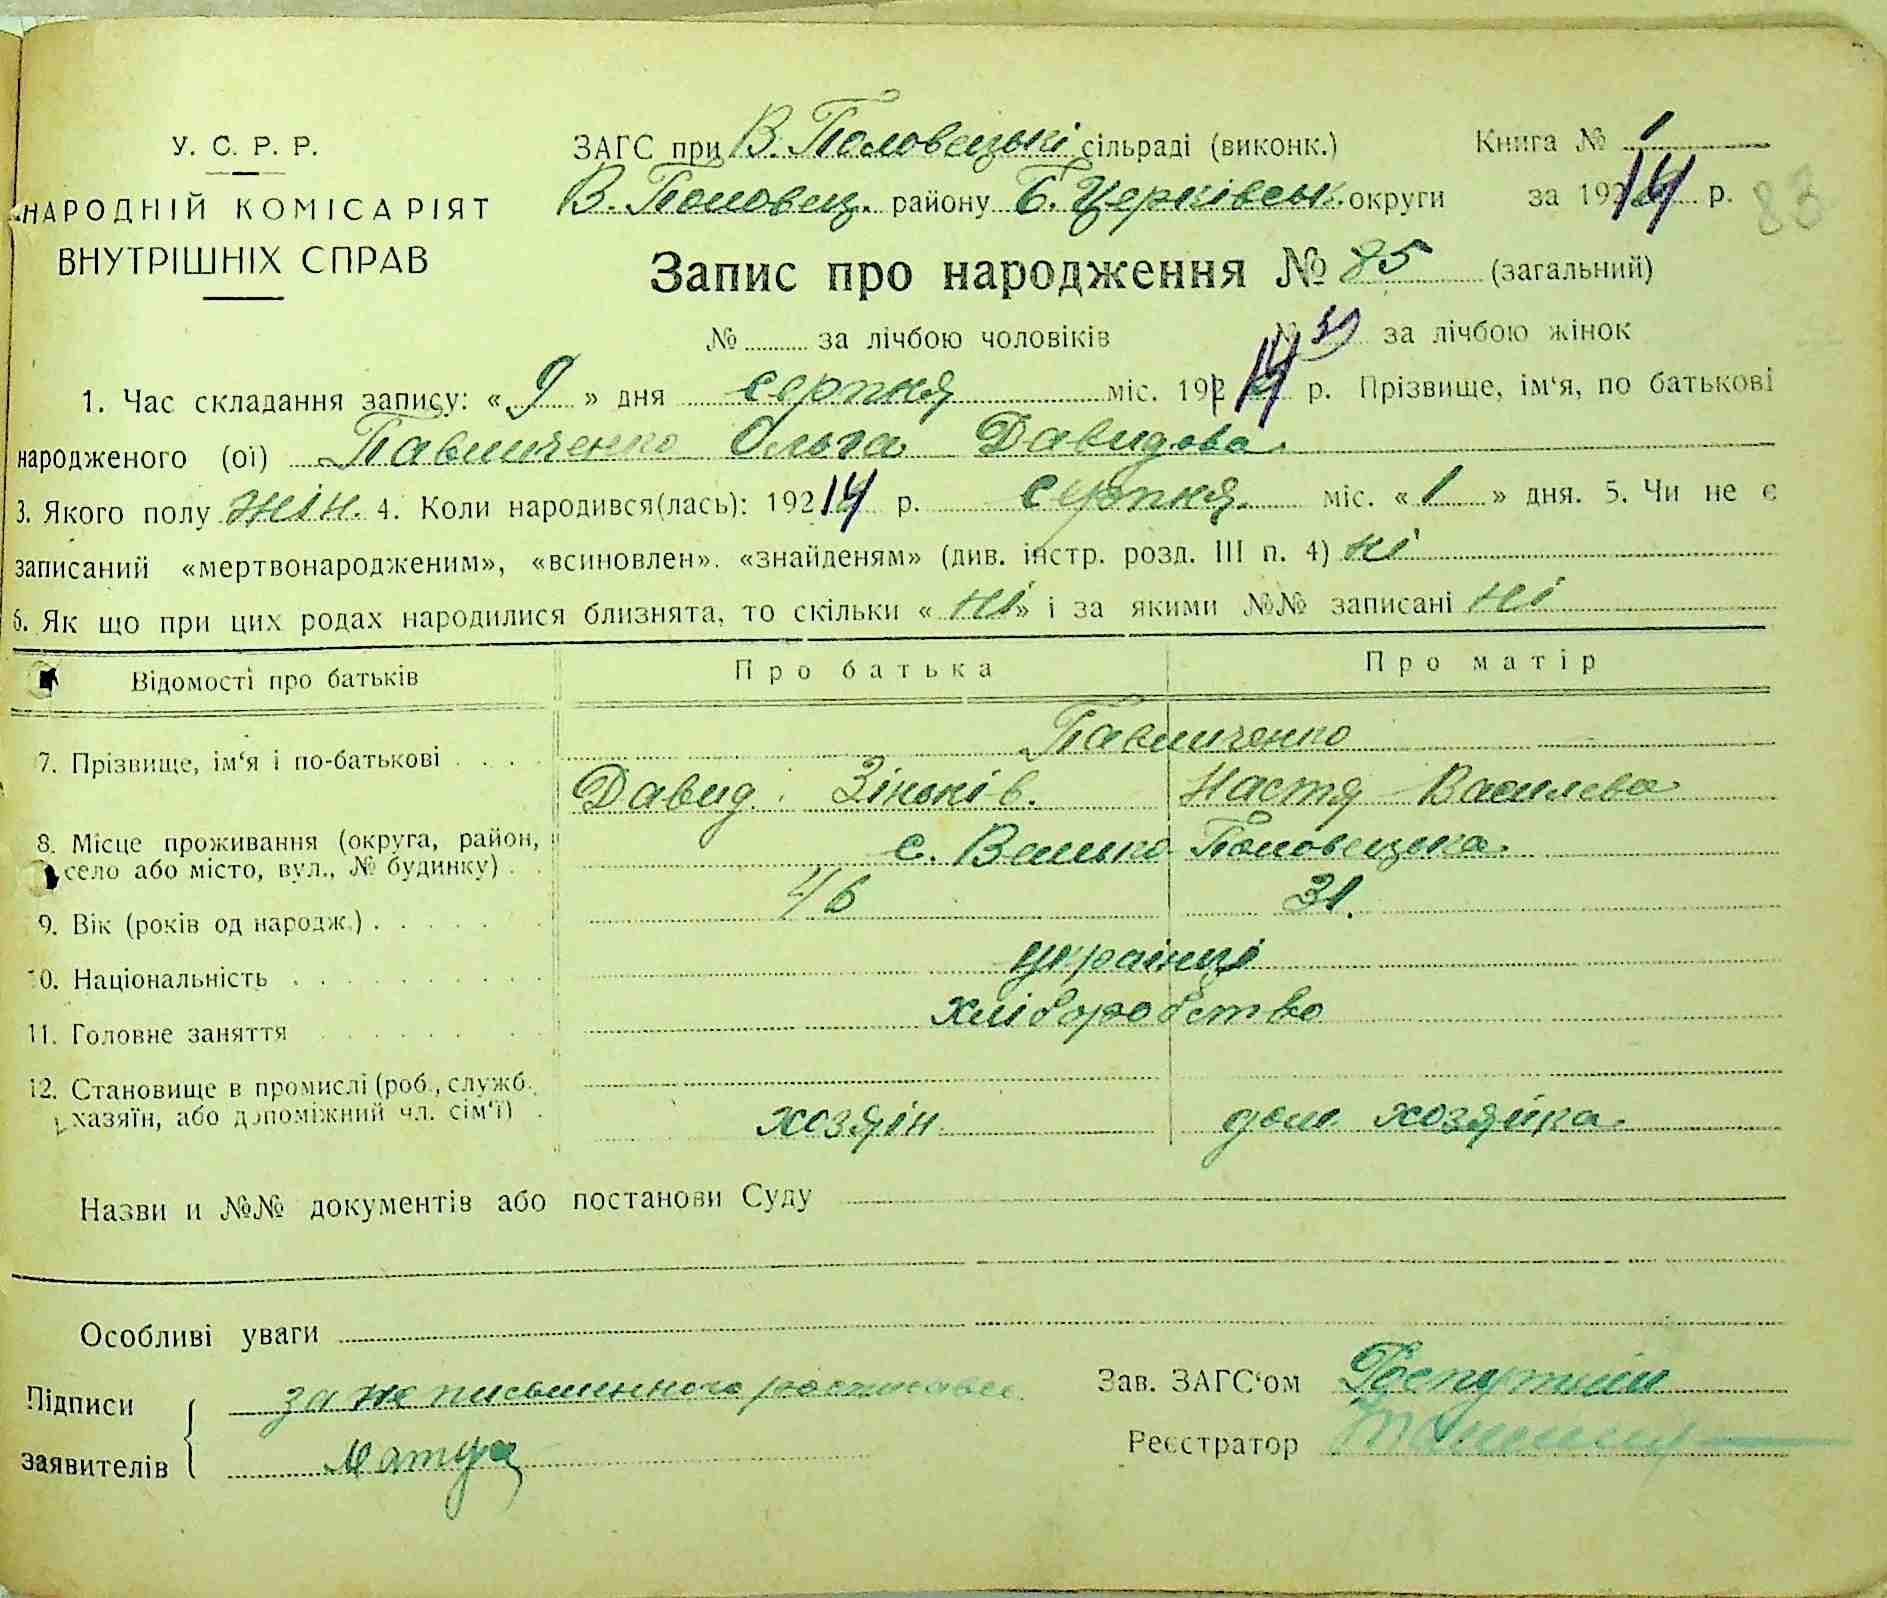 У. С. Р. Р.
НАРОДНІЙ КОМІСАРІЯТ
ВНУТРІШНІХ СПРАВ
ЗАГС при В. Половецькі сільраді (виконк.) Книга № 1
В. Половец. району Б. Церківськ. округи за 19214 р. 83
Запис про народження № 85 (загальний)
№ за лічбою чоловіків № за лічбою жінок
1. Час складання запису: « 9 » дня серпня міс. 19214 р. Прізвище, ім‘я, по батькові
народженого (ої) Павличенко Ольга Давидова.
3. Якого полу жін. 4. Коли народився(лась): 19214 р. серпня. міс. « 1 » дня. 5. Чи не є
записаний «мертвонародженим», «всиновлен». «знайденям» (див. інстр. розд. III п. 4) ні
6. Як що при цих родах народилися близнята, то скільки « ні » і за якими №№ записані ні
Відомості про батьків Про батька Про матір
7. Прізвище, ім‘я і по-батькові Павличенко
Давид Зіньків. Настя Василева
8. Місце проживання (округа, район,
село або місто, вул., № будинку) с. Велико Половецька.
9. Вік (років од народж.) 46 31.
10. Національність українці
11. Головне заняття хліборобство
12. Становище в промислі (роб., служб.
хазяїн, або допоміжний чл. сім‘ї) хозяїн дом. хозяйка.
Назви и №№ документів або постанови Суду
Особливі уваги
Підписи
заявителів
за не письменного росписався
Зав. ЗАГС‘ом
Реєстратор